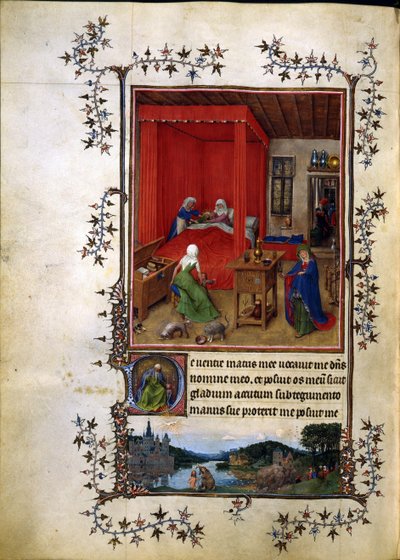 e uentre matris mee uocauit me dns
nomine meo, et posuit os meu sicut
gladium acutum sub tegumento
manus sue protexit me posuit me